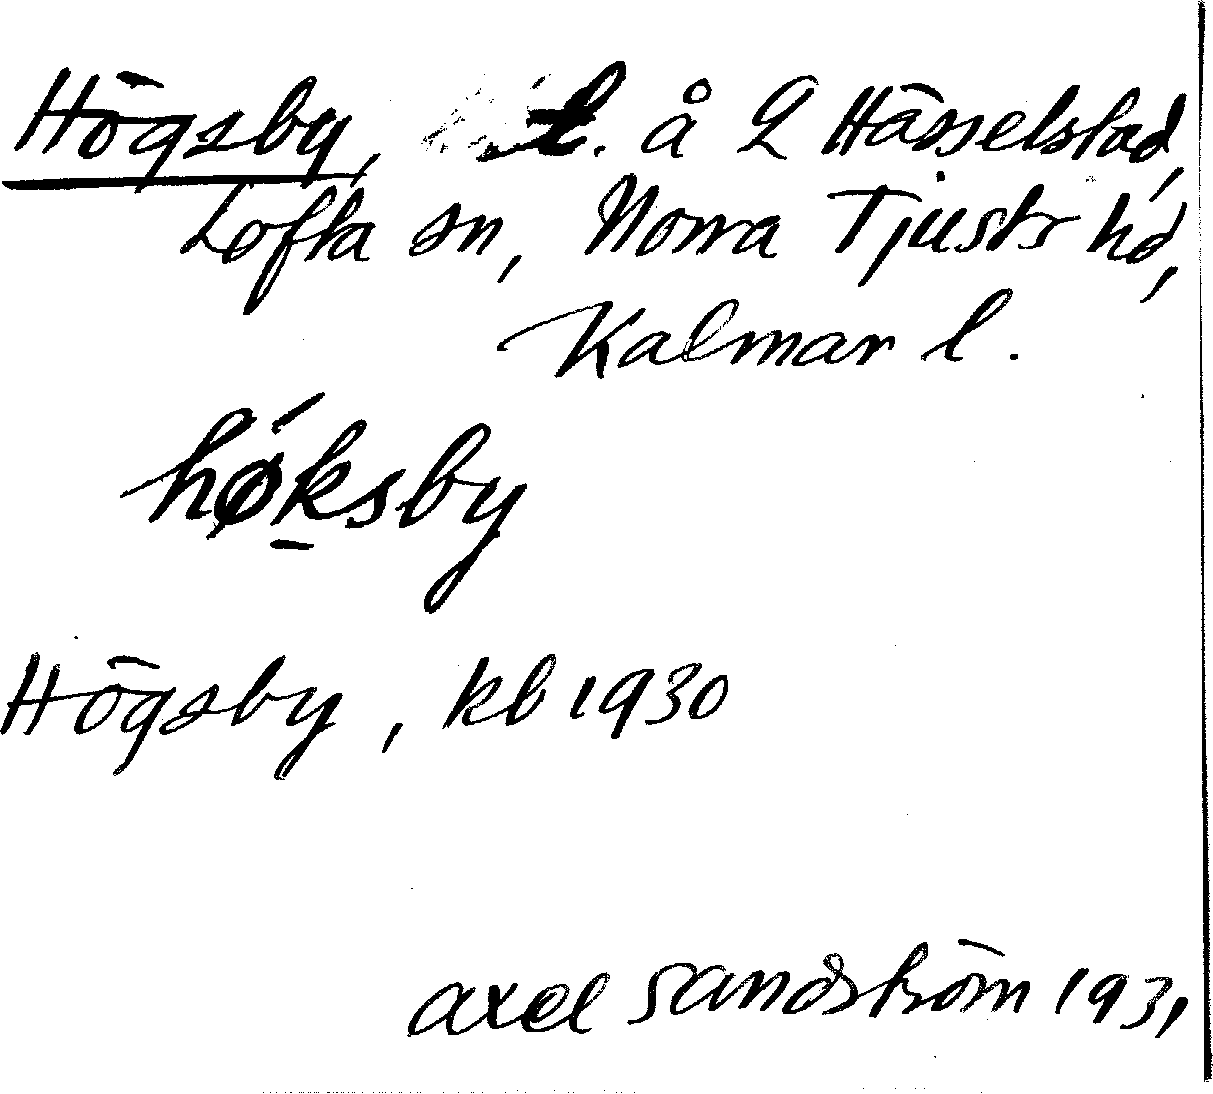 Högsby, t. å L Hässelstad,
Lofta sn, Norra Tjusts hd,
Kalmar l.
hø´ksby
Högsby, kb 1930
Axel Sandström 1931